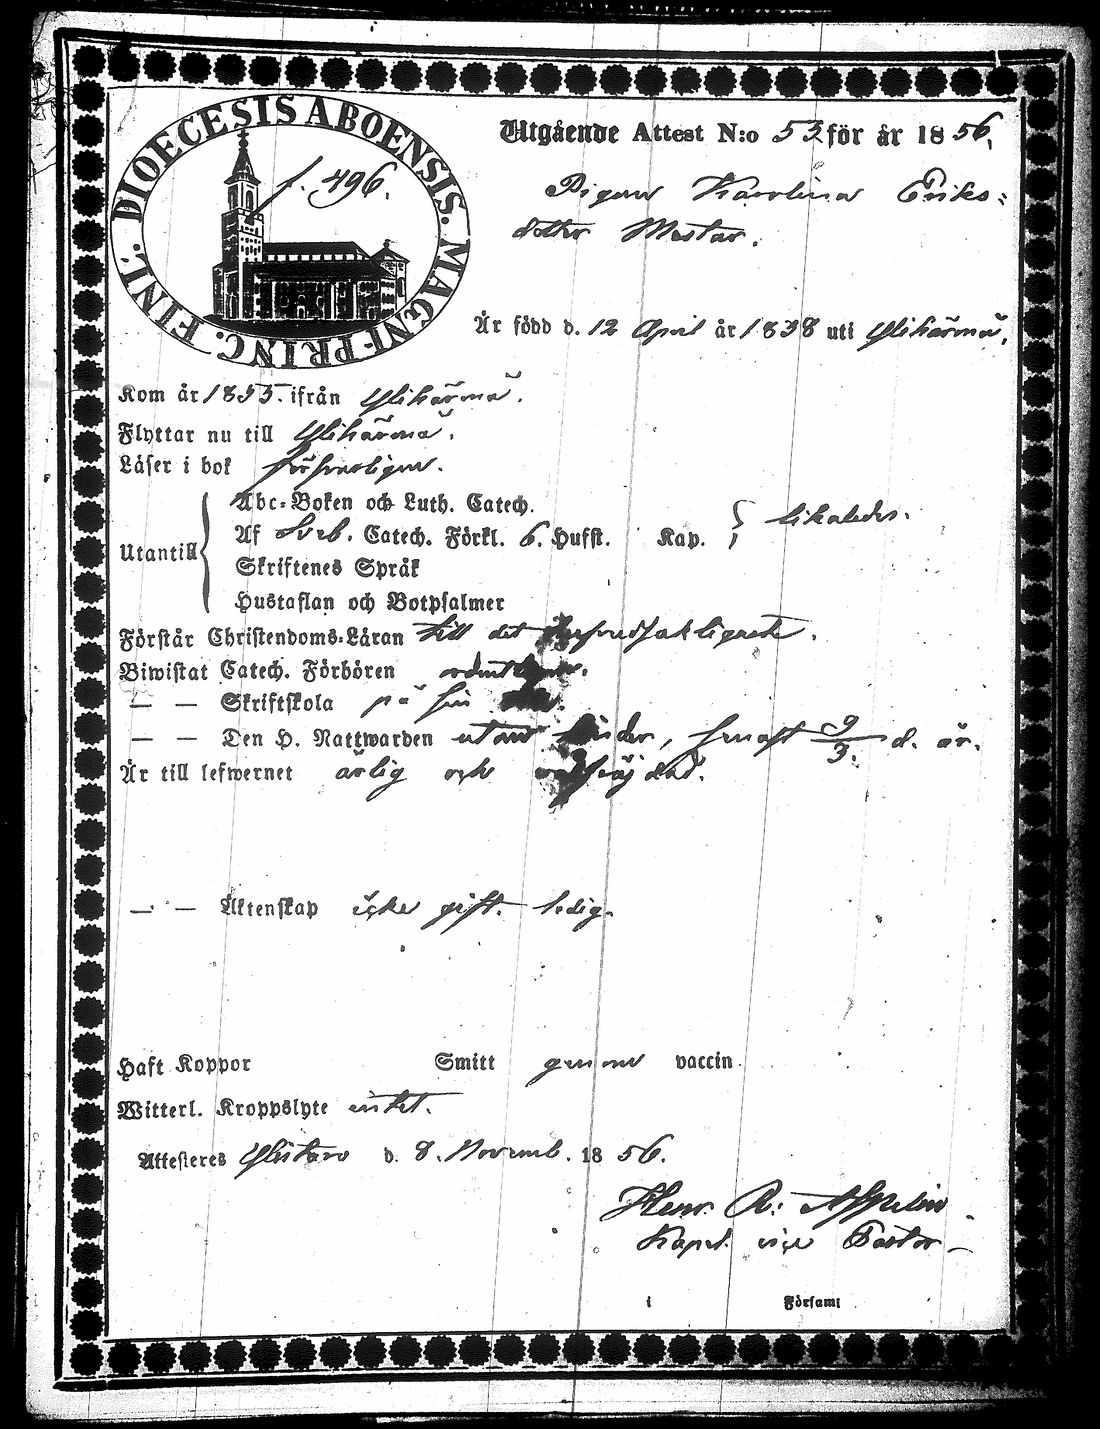 DIOECESIS ABOENSIS. MAGNI-PRINC. FINL.
f. 496.
Utgående Attest N:o 53 för år 1856.
Pigan Karolina Eriks=
dotter Mastar.
Är född d. 12 April år 1838 uti Ylihärmä,
Kom år 1855. ifrån Ylihärmä.
Flyttar nu till Ylihärmä.
Läser i bok försvarligen.
Utantill
Abc-Boken och Luth. Catech.
Af Sveb. Catech. Förkl. 6. Hufst. Kap. } likaledes.
Skriftenes Språk
Hustaflan och Botpsalmer
Förstår Christendoms-Läran till det
Biwistat Catech. Förhören
— — Skriftskola på sin
— — Den H. Nattwarden utom , senast 9/3. d. år.
Är till lefwernet ärlig och
— — Äktenskap icke gift. ledig.
Haft Koppor Smitt genom vaccin.
Witterl. Kroppslyte intet.
Attesteres Ylistaro d. 8. Novemb. 1856.
Henr. R: Appelin
Kapel. vice Pastor
i Församl